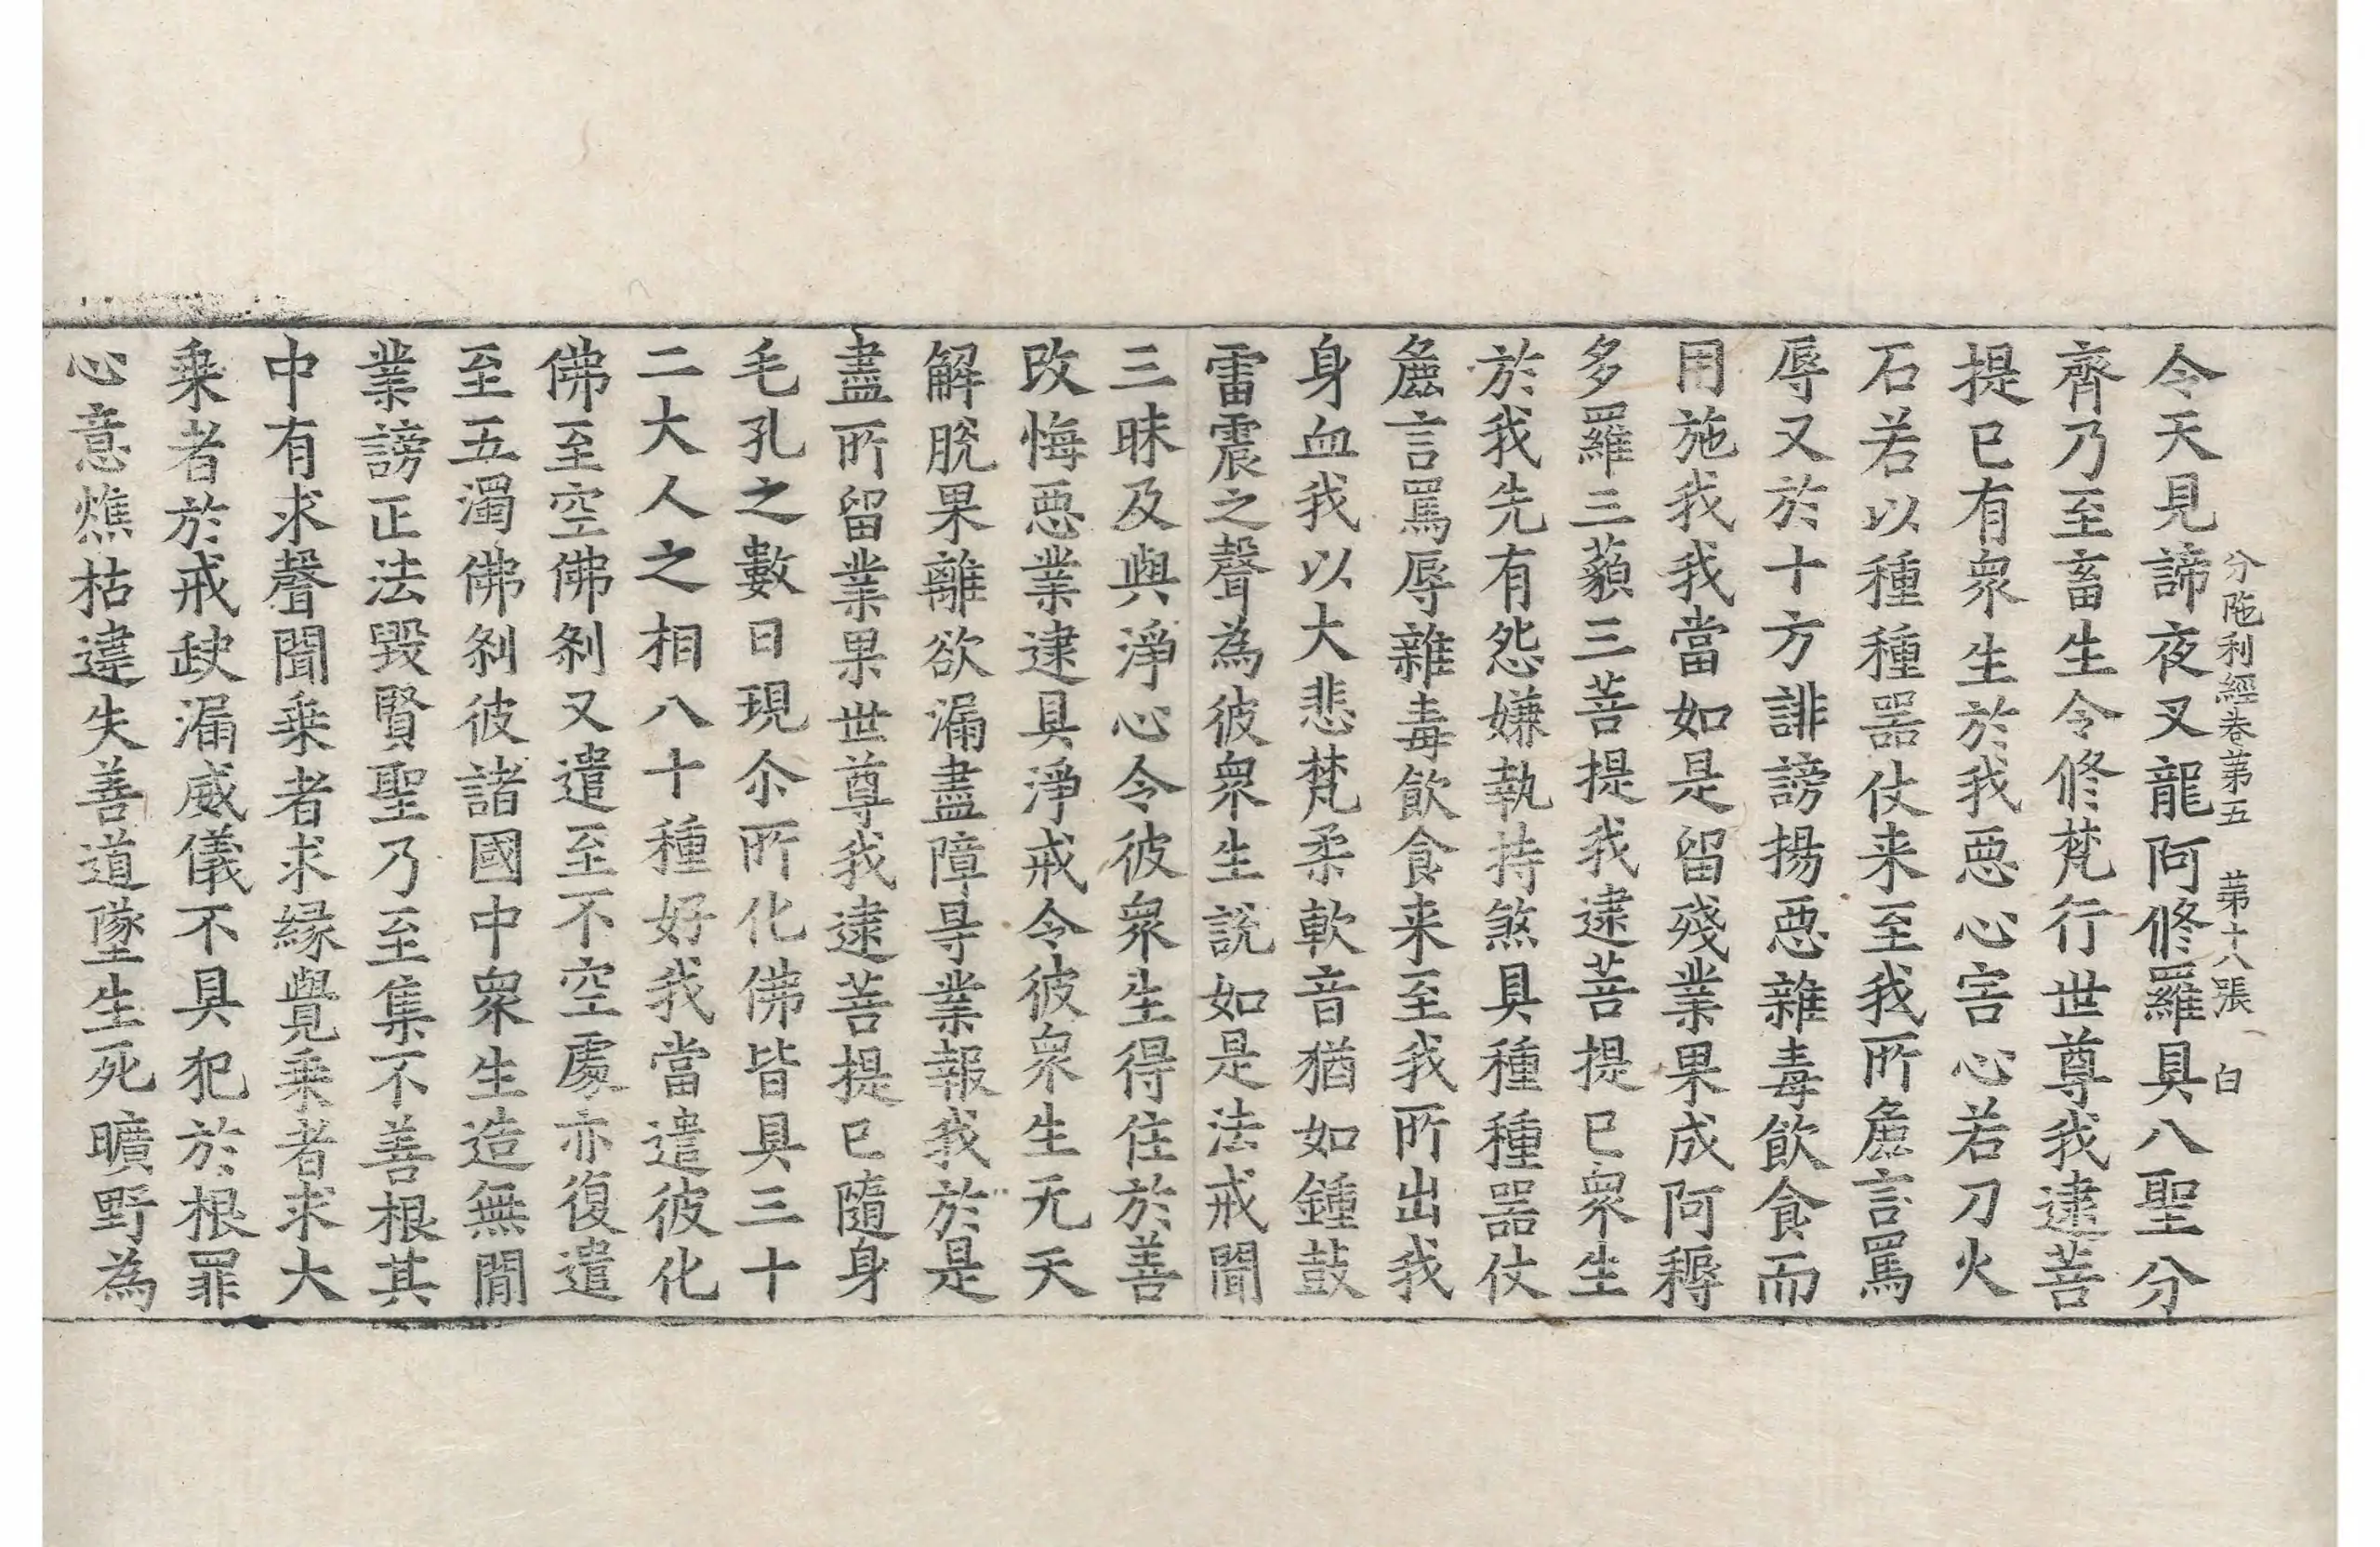 分陁利經卷第五　第十八張　白
令天見諦夜叉龍阿修羅具八聖分
齊乃至畜生令修梵行世尊我逮菩
提已有衆生於我惡心害心若刀火
石若以種種器仗来至我所麁言罵
辱又於十方誹謗揚惡雜毒飲食而
用施我我當如是留殘業果成阿耨
多羅三藐三菩提我逮菩提已衆生
於我先有怨嫌執持煞具種種器仗
麁言罵辱雜毒飲食来至我所出我
身血我以大悲梵柔軟音猶如鍾鼓
雷震之聲為彼衆生說如是法戒聞
三昧及與淨心令彼衆生得住於善
改悔惡業逮具淨戒令彼衆生无天
解脫果離欲漏盡障㝵業報我於是
盡所留業果世尊我逮菩提已隨身
毛孔之數日現尒所化佛皆具三十
二大人之相八十種好我當遣彼化
佛至空佛剎又遣至不空處亦復遣
至五濁佛剎彼諸國中衆生造無間
業謗正法毀賢聖乃至集不善根其
中有求聲聞乗者求緣覺乗者求大
乗者於戒缺漏威儀不具犯於根罪
心意燋枯違失善道墜生死曠野為